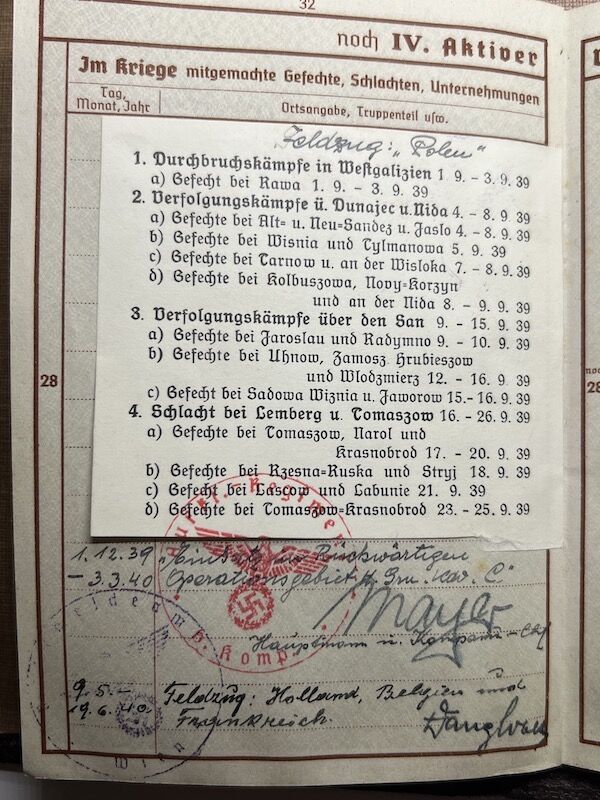 32
noch IV. Aktiver
Im Kriege mitgemachte Gefechte, Schlachten, Unternehmungen
Tag, Monat, Jahr
Ortsangabe, Truppenteil usw.
Feldzug: „Polen"
1. Durchbruchskämpfe in Westgalizien 1. 9. - 3. 9. 39
a) Gefecht bei Rawa 1. 9. - 3. 9. 39
2. Verfolgungskämpfe ü. Dunajec u. Nida 4. - 8. 9. 39
a) Gefechte bei Alt= u. Neu=Sandez u. Jaslo 4. - 8. 9. 39
b) Gefechte bei Wisnia und Tylmanowa 5. 9. 39
c) Gefechte bei Tarnow u. an der Wisloka 7. - 8. 9. 39
d) Gefechte bei Kolbuszowa, Novy=Korzyn
und an der Nida 8. - 9. 9. 39
3. Verfolgungskämpfe über den San 9. - 15. 9. 39
a) Gefechte bei Jaroslau und Radymno 9. - 10. 9. 39
b) Gefechte bei Uhnow, Zamosz Hrubieszow
und Wlodzmierz 12. - 16. 9. 39
c) Gefecht bei Sadowa Wiznia u. Jaworow 15. - 16. 9. 39
28
4. Schlacht bei Lemberg u. Tomaszow 16. - 26. 9. 39
a) Gefechte bei Tomaszow, Narol und
Krasnobrod 17. - 20. 9. 39
b) Gefechte bei Rzesna=Ruska und Stryj 18. 9. 39
c) Gefecht bei Lascow und Labunie 21. 9. 39
d) Gefechte bei Tomaszow=Krasnobrod 23. - 25. 9. 39
1.12.39 „Einsatz im Rückwärtigen
- 3.3.40 Operationsgebiet d. Gru. C"
Mayer
Hauptmann u. Kompanie-Chef
9.5. - Feldzug: Holland, Belgien und
19.6.40 Frankreich.
Komp.
Wien